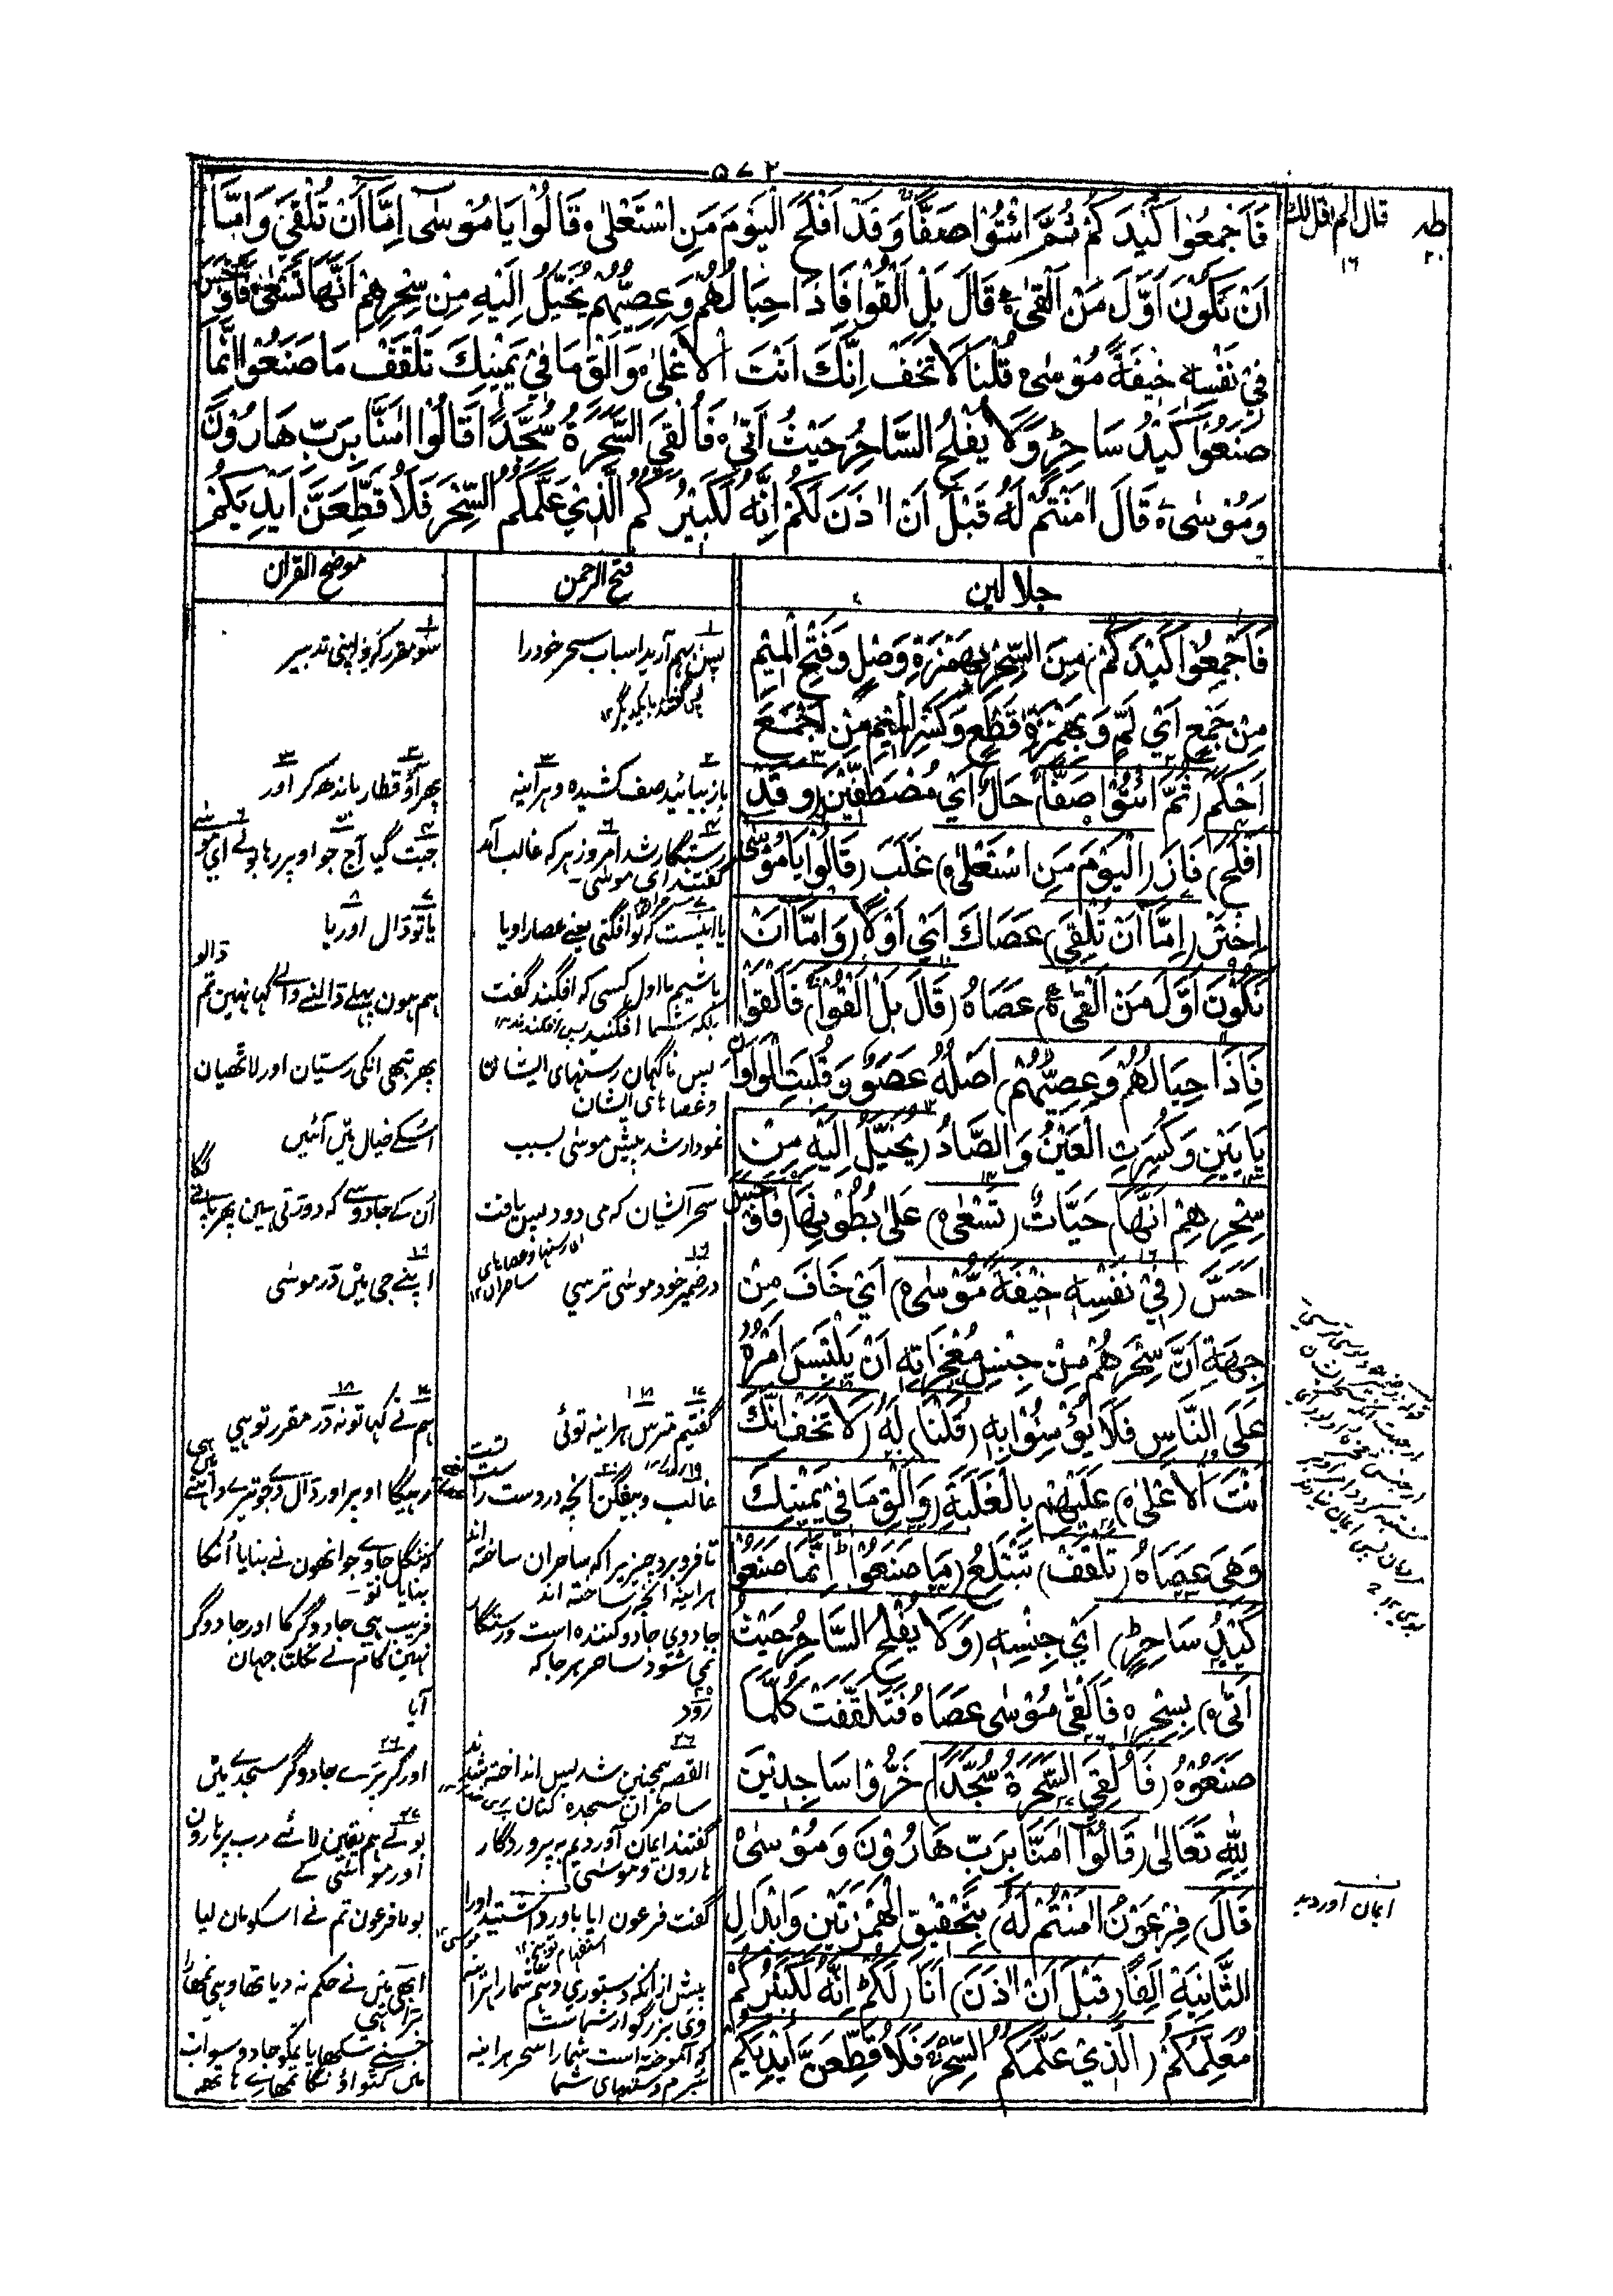 ۵۷۲
طه ۲۰
قال الم اقل لك ۱۶
فَاَجْمِعُوْا كَيْدَكُمْ ثُمَّ ائْتُوْا صَفًّا وَقَدْ اَفْلَحَ الْيَوْمَ مَنِ اسْتَعْلٰى قَالُوْا يَا مُوْسٰى اِمَّا اَنْ تُلْقِيَ وَاِمَّا
اَنْ نَكُوْنَ اَوَّلَ مَنْ اَلْقٰى قَالَ بَلْ اَلْقُوْا فَاِذَا حِبَالُهُمْ وَعِصِيُّهُمْ يُخَيَّلُ اِلَيْهِ مِنْ سِحْرِهِمْ اَنَّهَا تَسْعٰى فَاَوْجَسَ
فِيْ نَفْسِهٖ خِيْفَةً مُوْسٰى قُلْنَا لَا تَخَفْ اِنَّكَ اَنْتَ الْاَعْلٰى وَاَلْقِ مَا فِيْ يَمِيْنِكَ تَلْقَفْ مَا صَنَعُوْا اِنَّمَا
صَنَعُوْا كَيْدُ سَاحِرٍ وَلَا يُفْلِحُ السَّاحِرُ حَيْثُ اَتٰى فَاُلْقِيَ السَّحَرَةُ سُجَّدًا قَالُوْا اٰمَنَّا بِرَبِّ هَارُوْنَ
وَمُوْسٰى قَالَ اٰمَنْتُمْ لَهُ قَبْلَ اَنْ اٰذَنَ لَكُمْ اِنَّهُ لَكَبِيْرُكُمُ الَّذِيْ عَلَّمَكُمُ السِّحْرَ فَلَاُقَطِّعَنَّ اَيْدِيَكُمْ
جلالين
فَاَجْمِعُوْا كَيْدَكُمْ) مِنَ السِّحْرِ بِهَمْزَةِ وَصْلٍ وَفَتْحِ الْمِيْمِ
مِنْ جَمَعَ اَيْ لَمَّ وَبِهَمْزَةِ قَطْعٍ وَكَسْرِ الْمِيْمِ مِنْ اَجْمَعَ
اَحْكَمَ (ثُمَّ ائْتُوْا صَفًّا) حَالٌ اَيْ مُصْطَفِّيْنَ (وَقَدْ
اَفْلَحَ) فَازَ (الْيَوْمَ مَنِ اسْتَعْلٰى) غَلَبَ (قَالُوْا يَا مُوْسٰى
اِخْتَرْ (اِمَّا اَنْ تُلْقِيَ) عَصَاكَ اَيْ اَوَّلًا (وَاِمَّا اَنْ
نَكُوْنَ اَوَّلَ مَنْ اَلْقٰى) عَصَاهُ (قَالَ بَلْ اَلْقُوْا) فَاَلْقَوْا
فَاِذَا حِبَالُهُمْ وَعِصِيُّهُمْ) اَصْلُهُ عُصُوْوٌ قُلِبَتِ الْوَاوَانِ
يَايَيْنِ وَكُسِرَتِ الْعَيْنُ وَالصَّادُ (يُخَيَّلُ اِلَيْهِ مِنْ
سِحْرِهِمْ اَنَّهَا) حَيَّاتٌ (تَسْعٰى) عَلٰى بُطُوْنِهَا (فَاَوْجَسَ
اَحَسَّ (فِيْ نَفْسِهٖ خِيْفَةً مُوْسٰى) اَيْ خَافَ مِنْ
جِهَةِ اَنَّ سِحْرَهُمْ مِنْ جِنْسِ مُعْجِزَاتِهٖ اَنْ يَلْتَبِسَ اَمْرُهُ
عَلَى النَّاسِ فَلَا يُؤْمِنُوْا بِهٖ (قُلْنَا) لَهُ (لَا تَخَفْ اِنَّكَ
اَنْتَ الْاَعْلٰى) عَلَيْهِمْ بِالْغَلَبَةِ (وَاَلْقِ مَا فِيْ يَمِيْنِكَ
وَهِيَ عَصَاهُ (تَلْقَفْ) تَبْتَلِعُ (مَا صَنَعُوْا اِنَّمَا صَنَعُوْا
كَيْدُ سَاحِرٍ) اَيْ جِنْسِهٖ (وَلَا يُفْلِحُ السَّاحِرُ حَيْثُ
اَتٰى) بِسِحْرِهٖ فَاَلْقٰى مُوْسٰى عَصَاهُ فَتَلَقَّفَتْ كُلَّمَا
صَنَعُوْهُ (فَاُلْقِيَ السَّحَرَةُ سُجَّدًا) خَرُّوْا سَاجِدِيْنَ
لِلّٰهِ تَعَالٰى (قَالُوْا اٰمَنَّا بِرَبِّ هَارُوْنَ وَمُوْسٰى
قَالَ) فِرْعَوْنُ (اٰمَنْتُمْ لَهُ) بِتَحْقِيْقِ الْهَمْزَتَيْنِ وَاِبْدَالِ
الثَّانِيَةِ اَلِفًا (قَبْلَ اَنْ اٰذَنَ) اَنَا (لَكُمْ اِنَّهُ لَكَبِيْرُكُمْ
مُعَلِّمُكُمْ (الَّذِيْ عَلَّمَكُمُ السِّحْرَ فَلَاُقَطِّعَنَّ اَيْدِيَكُمْ
فتح الرحمن
پس بهم آرید اسباب سحر خود را
پس گفتند با یکدیگر ۱۲
باز بیائید صف کشیده و هرآئینه
رستگار شد امروز هر که غالب آمد
گفتند ای موسی
یا اینست که تو افگنی یعنے عصا را و یا
باشیم ما اول کسی که افگند گفت
بلکه شما افگنید پس افگندند ۱۲
پس ناگهان رسنهای ایشان
و عصاهای ایشان
نمودار شد پیش موسی بسبب
سحر ایشان که می دود پس یافت
آن رسنها و عصاهای
ساحران ۱۲
در ضمیر خود موسی ترسی
گفتیم مترس هرآینه توئی
غالب و بیفگن آنچه در دست راست تست
تا فرو برد چیزیرا که ساحران ساخته اند
هرآینه آنچه ساخته اند
جادوی جادو کننده است و رستگار
نمی شود ساحر هر جا که
رود
القصه همچنین شد پس انداخته شدند
ساحران سجده کنان
گفتند ایمان آوردیم به پروردگار
هارون و موسی
گفت فرعون آیا باور داشتید او را
استفهام توبیخ ۱۲
پیش از آنکه دستوری دهم شمارا هرآینه
وی بزرگوار شماست
که آموخته است شما را سحر هرآینه
ببرم دستهای شما
موضح القرآن
سو مقرر کرو اپنی تدبیر
پھر آؤ قطار باندھ کر اور
جیت گیا آج جو اوپر رہا بولے ای موسی
یا تو ڈال اور یا
ہم ہون پہلے ڈالنے والے کہا نہین تم ڈالو
پھر تبھی انکی رسیان اور لاٹھیان
اسکے خیال مین آئین
اُن کے جادو سے کہ دوڑتی ہین پھر پانے لگا
اپنے جی مین ڈر موسی
ہم نے کہا تو نہ ڈر مقرر تو ہی
رہیگا اوپر اور ڈال دے جو تیرے داہنے
کہ نگل جاوے جو انھون نے بنایا اُنکا
بنایا تو
فریب ہی جادوگر کا اور جادوگر
نہین کام لے نکلتا جہان
آیا
اور گر پڑے جادوگر سجدے مین
بولے ہم یقین لائے رب پر ہارون
اور موسی کے
بولا فرعون تم نے اسکو مان لیا
ابھی مین نے حکم نہ دیا تھا وہی تمھارا
بڑا ہی
جسنے سکھایا تمکو جادو سو اب
مین کٹواؤنگا تمھارے ہاتھ
ایمان آوردید